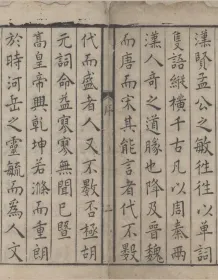 漢賢孟公之敏徃徃以單詞
隻語縱橫千古凡以周秦兩
漢人奇之道勝也降及晉魏
而唐而宋其能言者代不數
序
代而盛者人又不數否極胡
元詞命益寥寥無聞已暨
高皇帝興乾坤若滌而重朗
於時河岳之靈毓而為人文